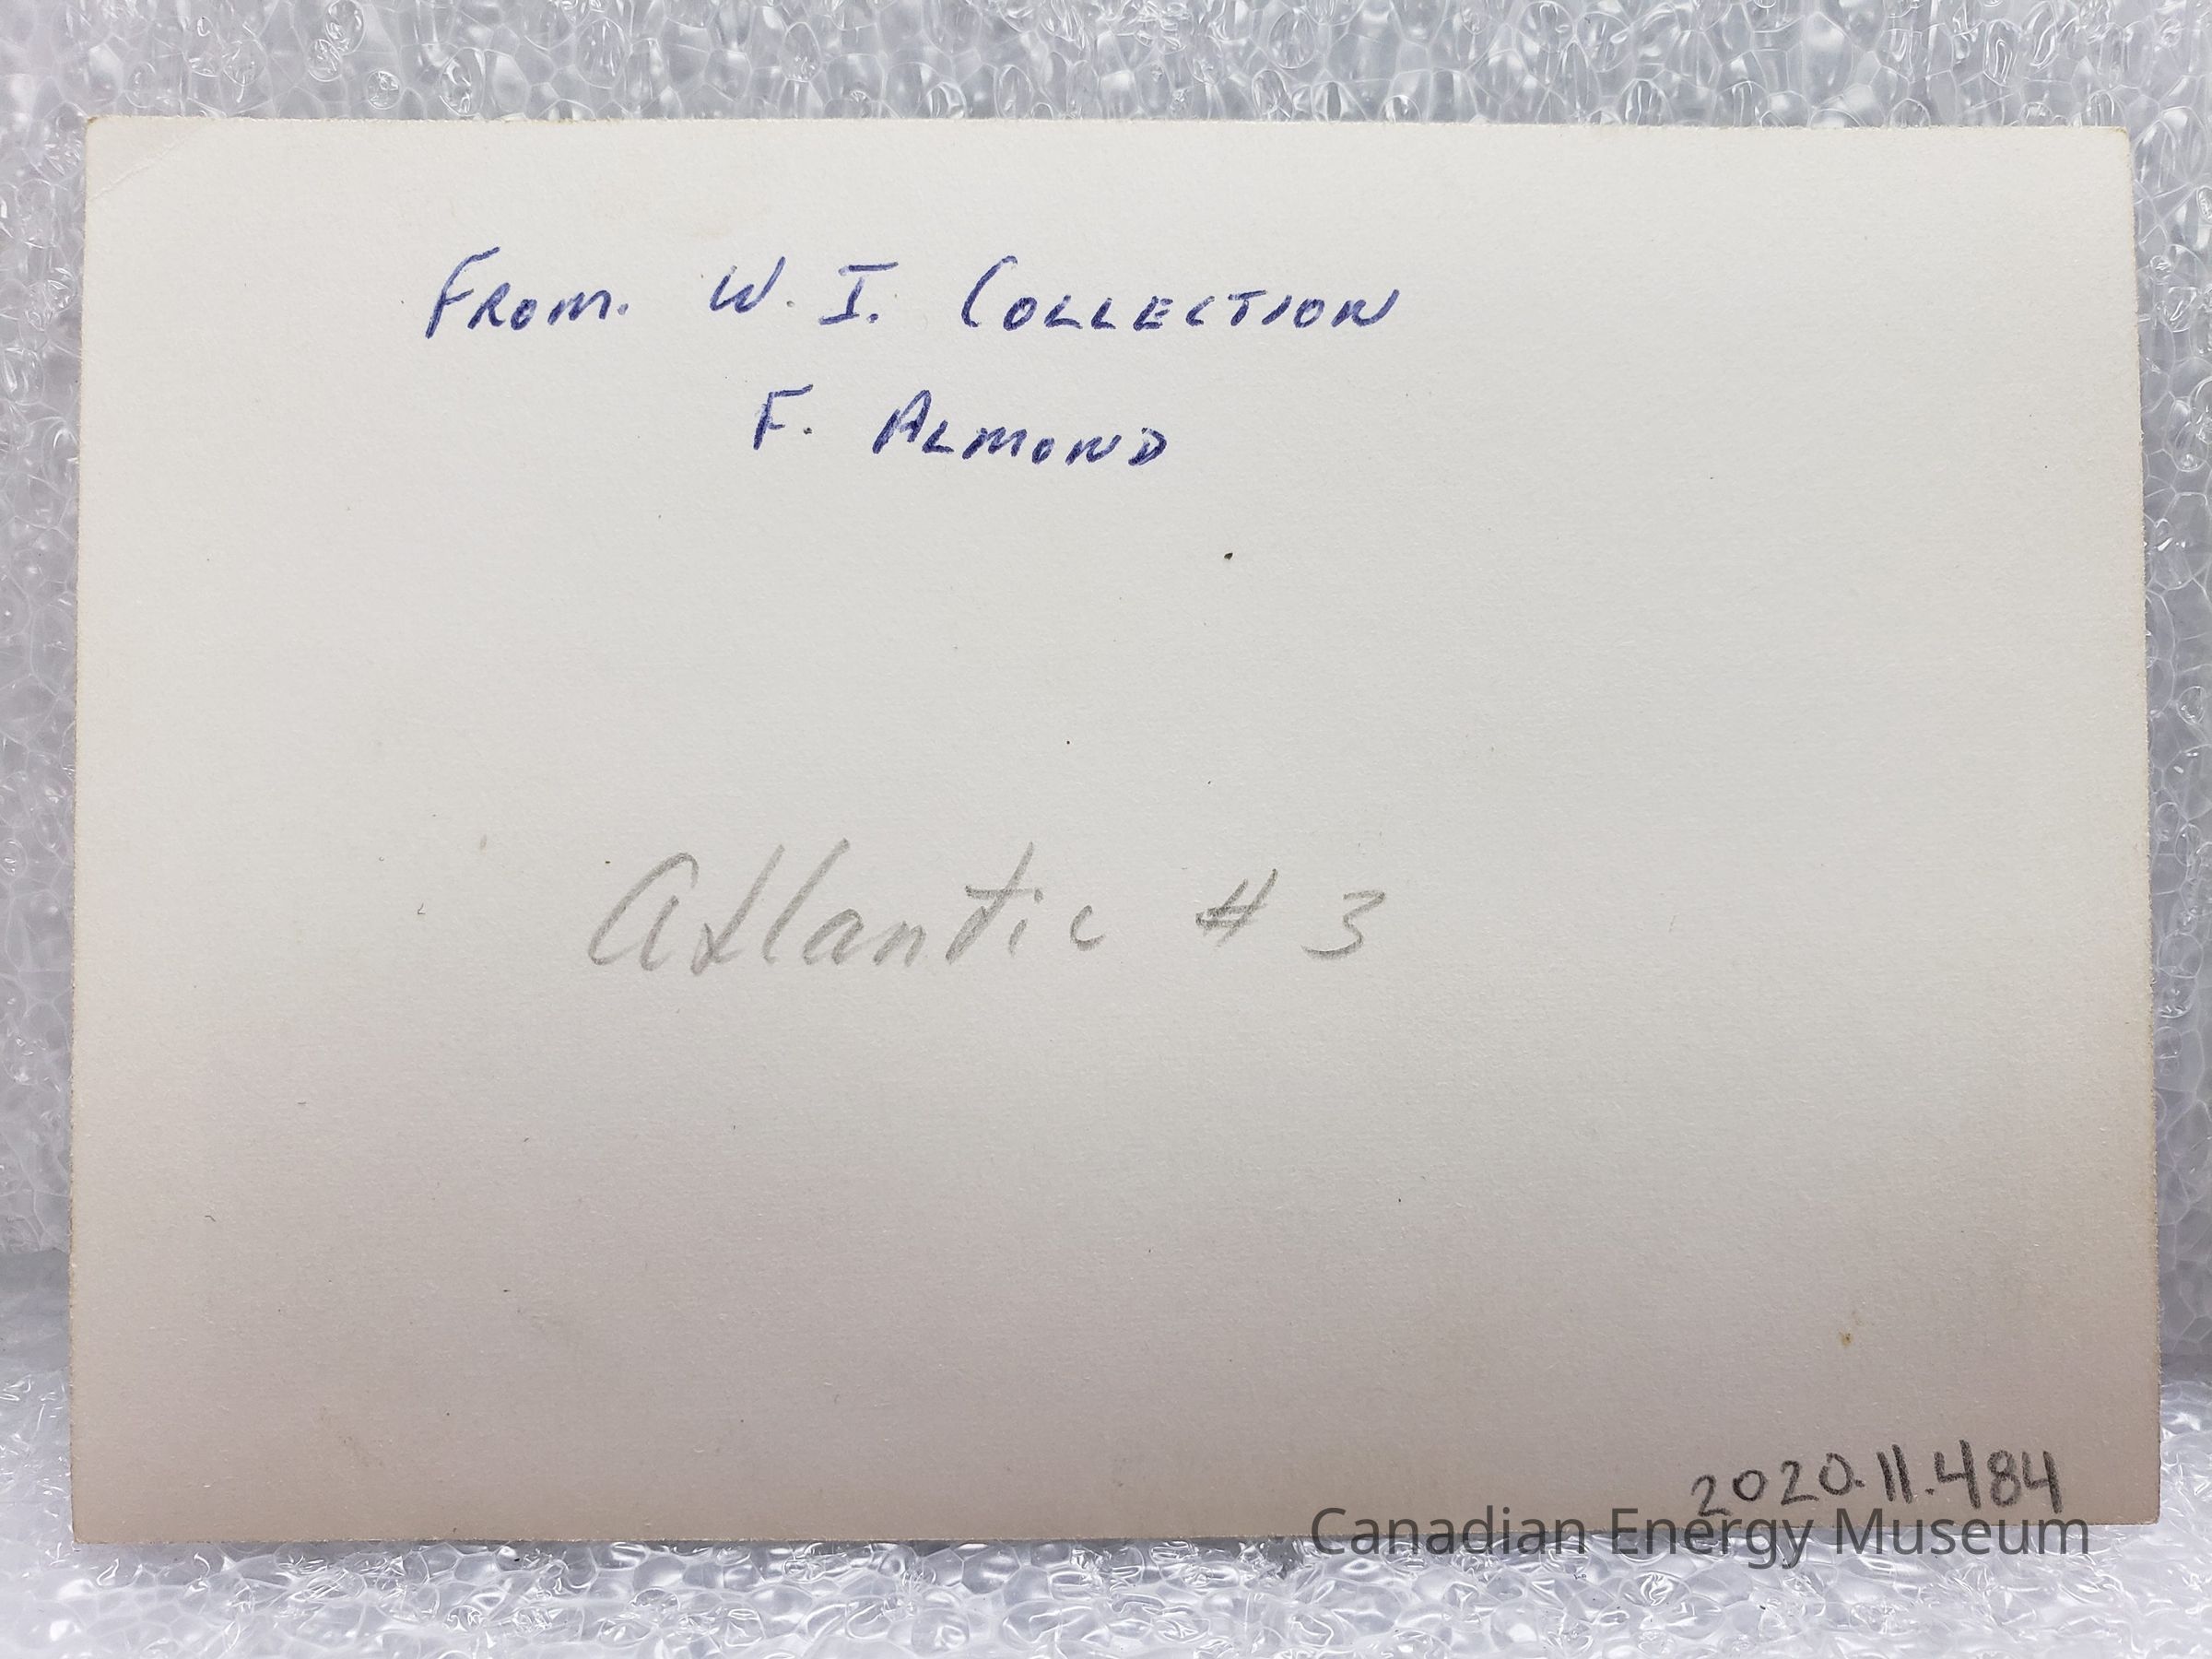 From. W. I. Collection
F. Almond
Atlantic # 3
2020.11.484
Canadian Energy Museum